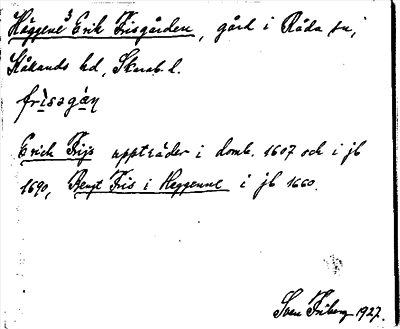 Häggene 3 Erik Frisgården, gård i Råda sn,
Kållands hd, Skarab. l.
frìsagàn
Erich Frijs uppträder i domb. 1607 och i jb
1690, Bengt Fris i Heggenne i jb 1660.
Sven Friberg 1927.